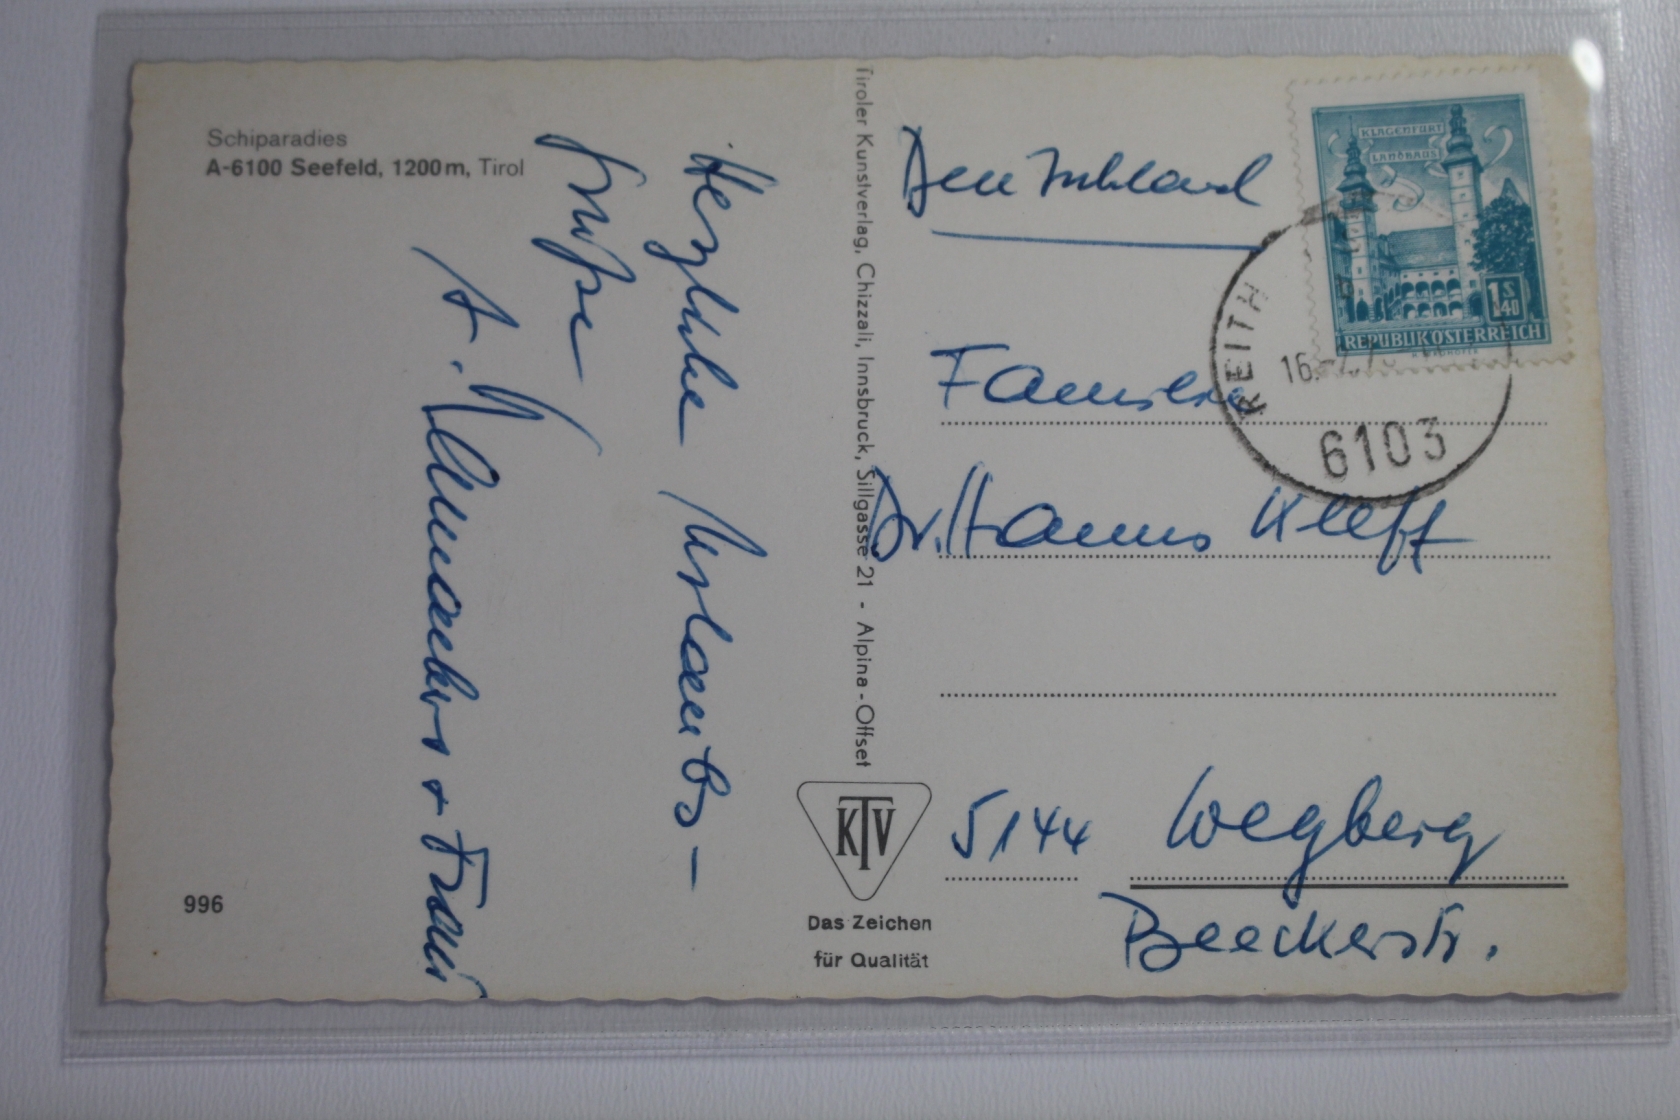 Schiparadies
A-6100 Seefeld, 1200 m, Tirol
Herzliche Urlaubs-
grüße
A. + Frau
996
Tiroler Kunstverlag, Chizzali, Innsbruck, Sillgasse 21 - Alpina-Offset
KTV
Das Zeichen
für Qualität
KLAGENFURT
LANDHAUS
1 S
40
REPUBLIK OSTERREICH
REITH
16.
6103
Deutschland
Familie
Dr. Hanns Kleff
5144 Wegberg
Beeckerstr.